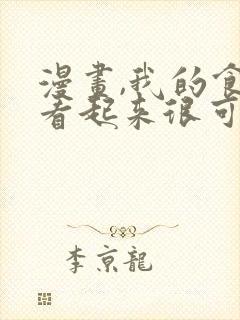 漫畫,我的食
看起来很可
李京龍